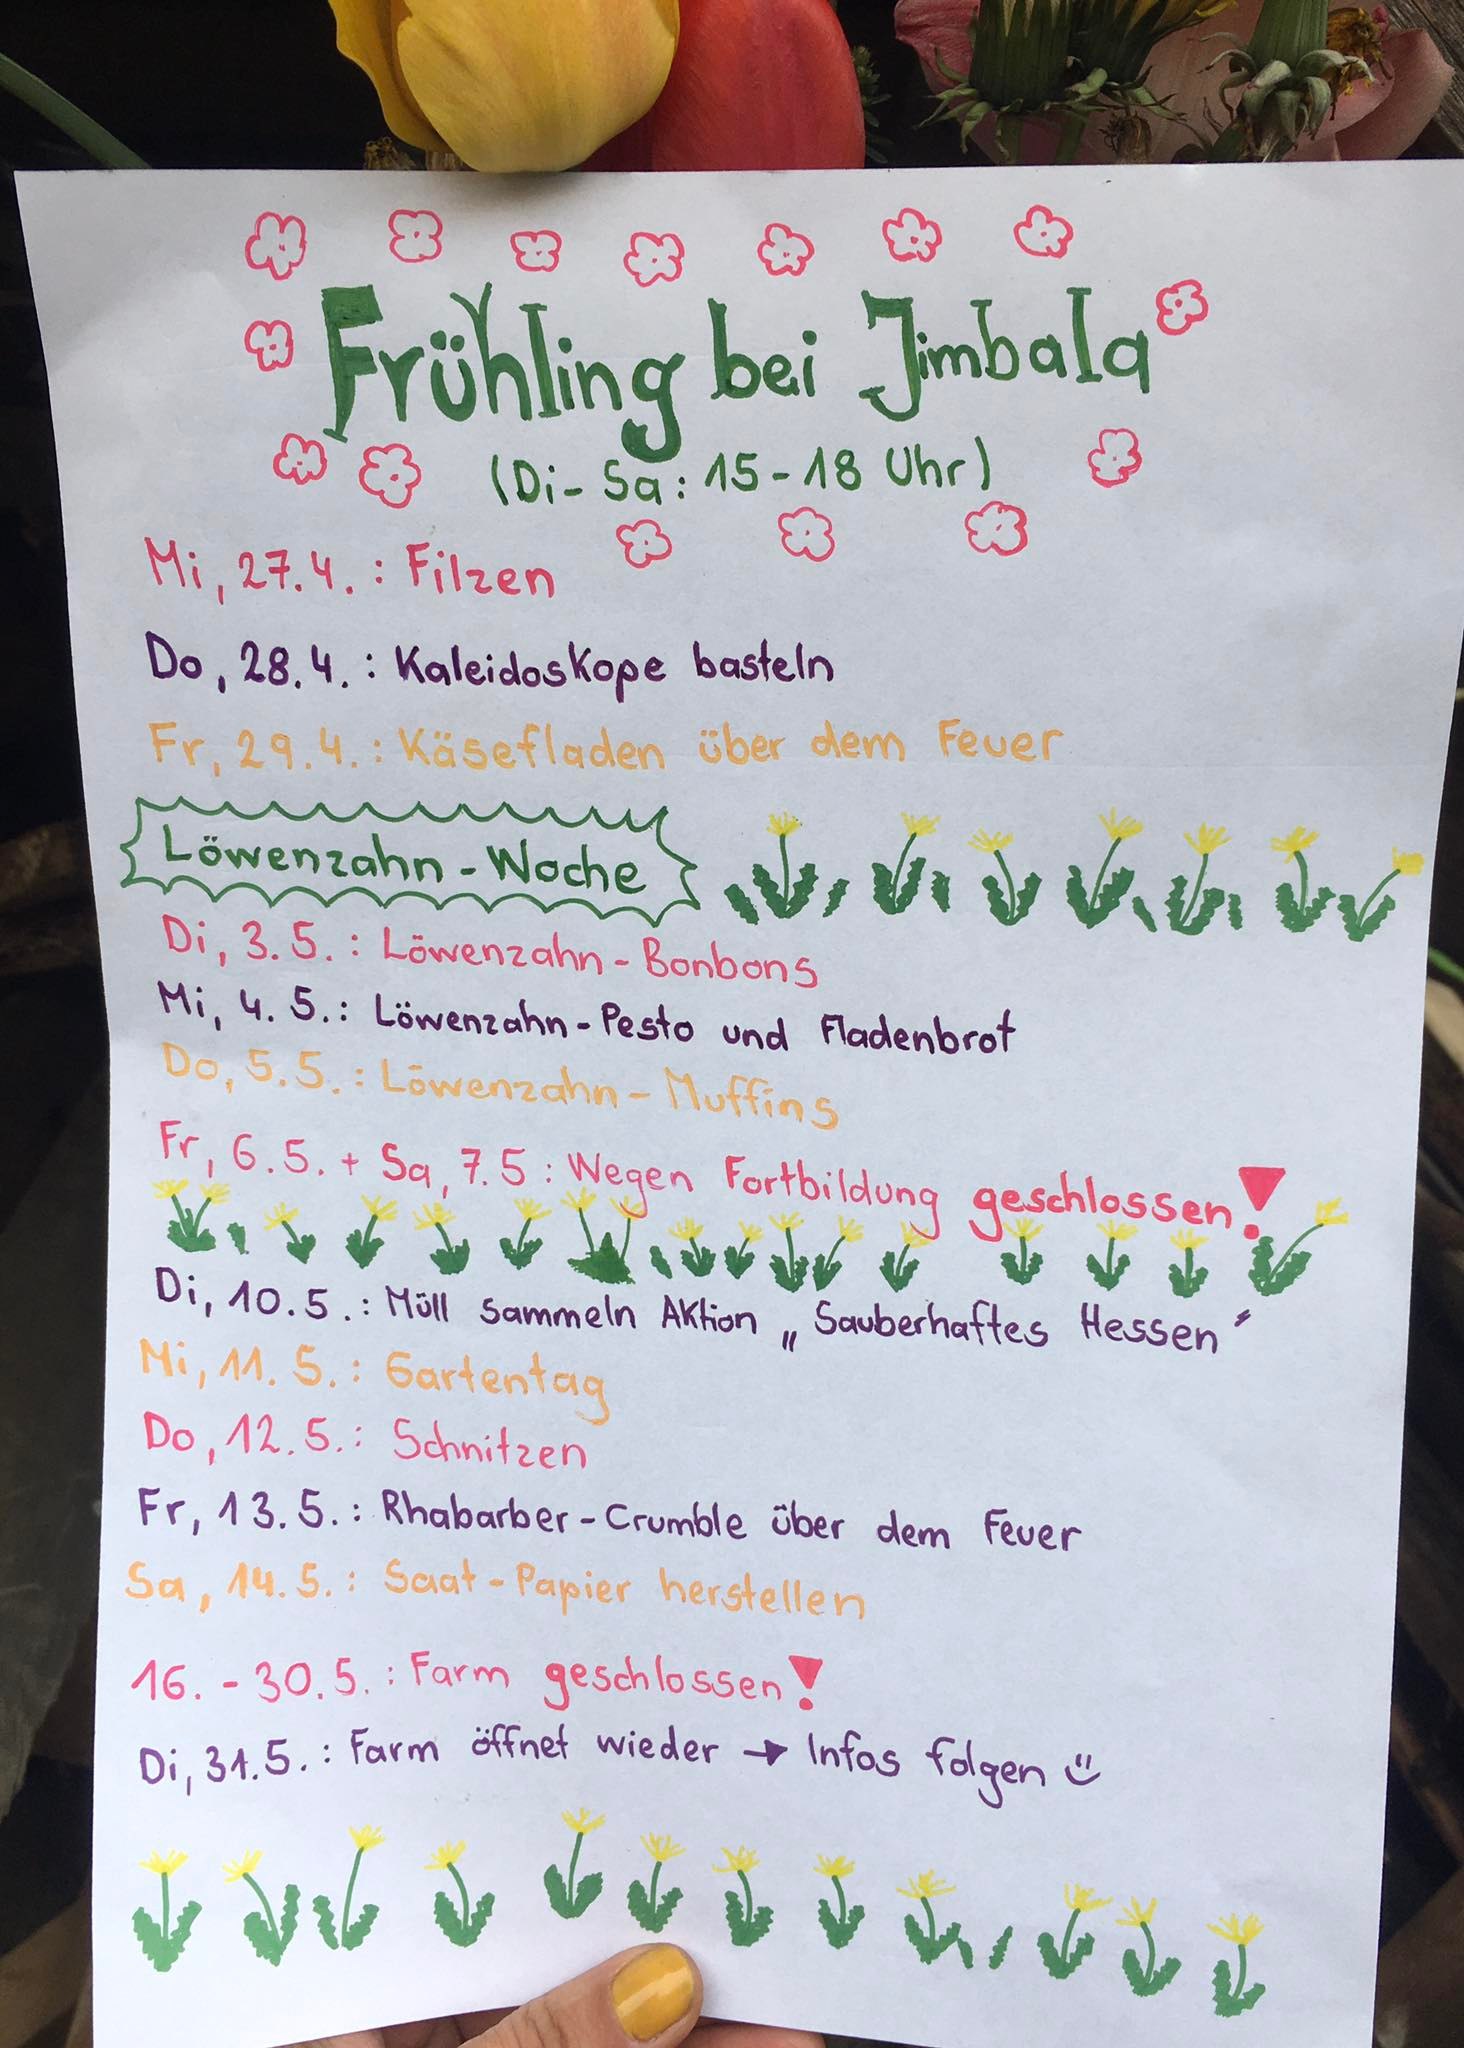 Frühling bei Jimbala
(Di- Sa: 15-18 Uhr)
Mi, 27.4.: Filzen
Do, 28.4.: Kaleidoskope basteln
Fr, 29.4.: Käsefladen über dem Feuer
Löwenzahn-Woche
Di, 3.5.: Löwenzahn-Bonbons
Mi, 4.5.: Löwenzahn-Pesto und Fladenbrot
Do, 5.5.: Löwenzahn-Muffins
Fr, 6.5. + Sa, 7.5: Wegen Fortbildung geschlossen!
Di, 10.5.: Müll sammeln Aktion „Sauberhaftes Hessen“
Mi, 11.5.: Gartentag
Do, 12.5.: Schnitzen
Fr, 13.5.: Rhabarber-Crumble über dem Feuer
Sa, 14.5.: Saat-Papier herstellen
16. - 30.5.: Farm geschlossen!
Di, 31.5.: Farm öffnet wieder → Infos folgen ü